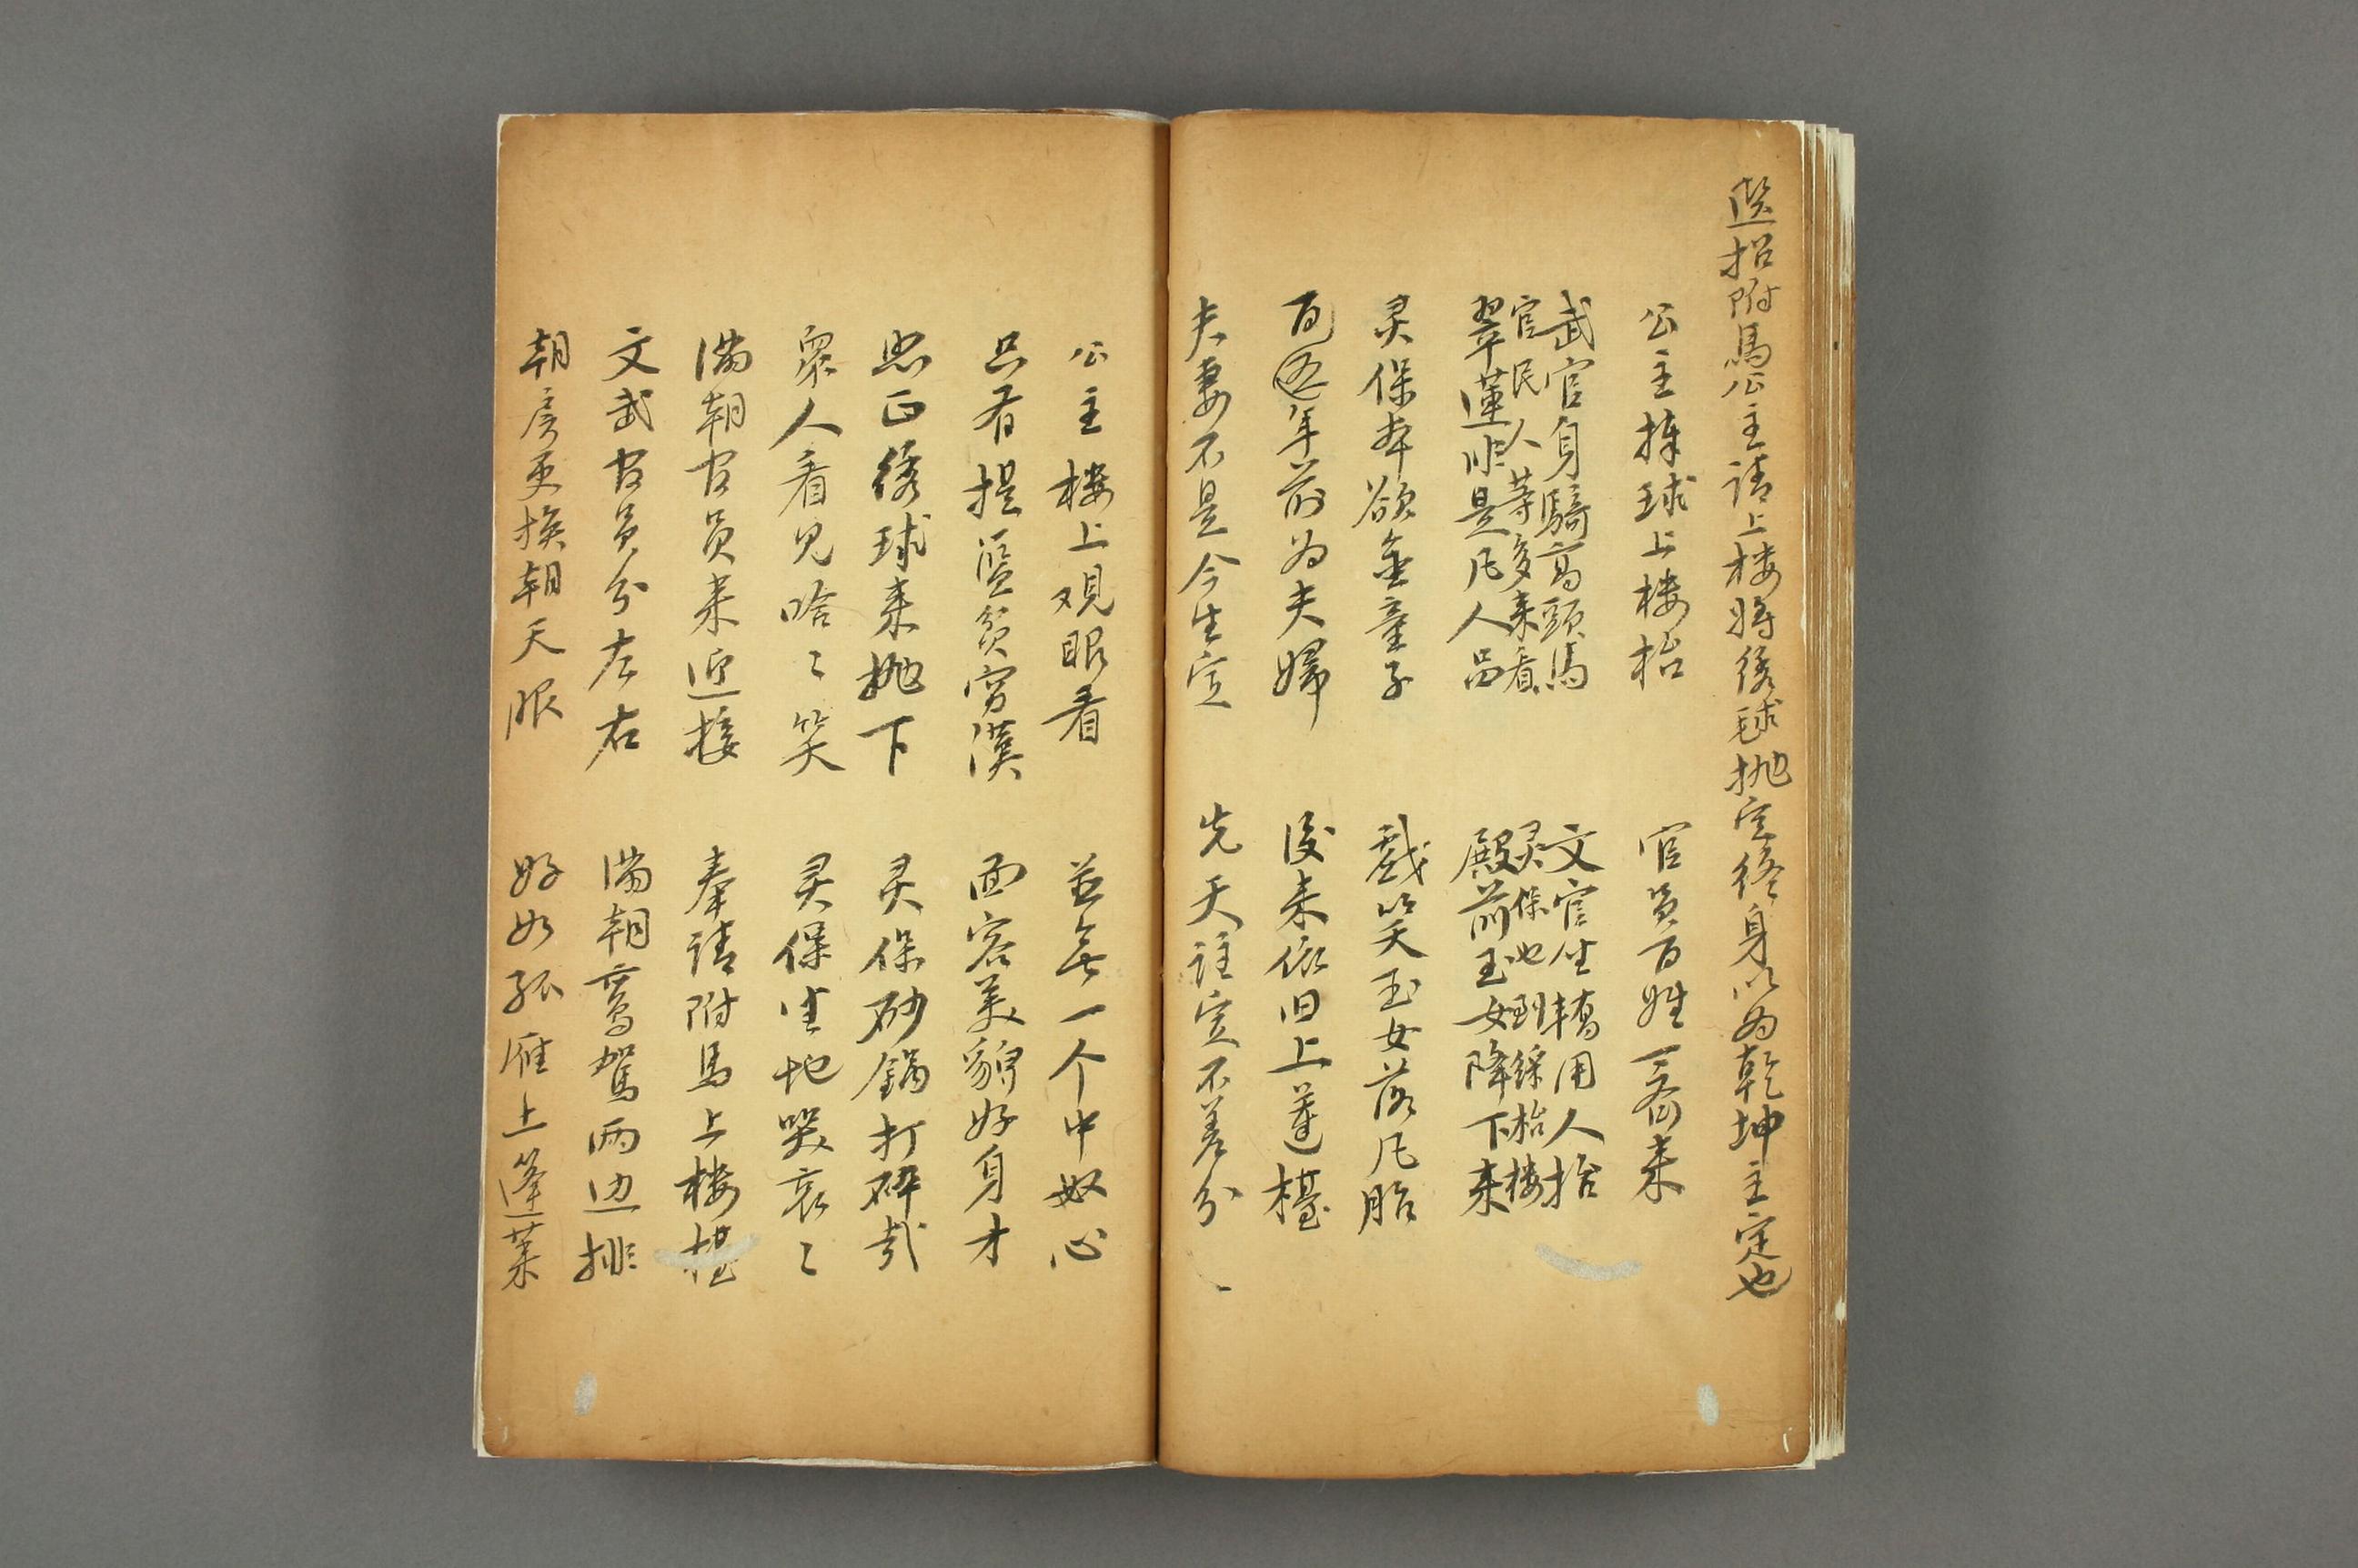 選招附馬公主請上楼將绣毬抛定终身以为乾坤主定也
公主捧球上楼枱 官員百姓一齐来
武官身騎高頭馬 文官坐轎用人抬
官民人等多来看 灵保也到綵枱楼
翠莲非是凡人品 殿前玉女降下来
灵保本欲金童子 戲笑玉女落凡胎
百年前为夫婦 後来依旧上莲檯
夫妻不是今生定 先天註定不差分
公主楼上观眼看 并無一个中奴心
只有提篮贫穷漢 面容美貌好身才
忽正绣球来抛下 灵保砂鍋打碎哉
眾人看见哈〻笑 灵保坐地哭哀〻
满朝官員来迎接 奉請附馬上楼檯
文武官員分左右 满朝鸾駕两边排
朝房更换朝天服 好如孤雁上蓬莱